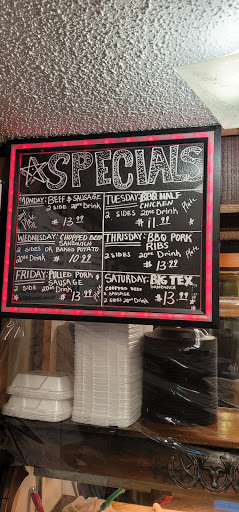 SPECIALS
MONDAY: BEEF & SAUSAGE
2 SIDES 20oz Drink
$ 13.99
TUESDAY: BBQ HALF
CHICKEN Plate
2 SIDES 20oz Drink
$ 11.99
WEDNESDAY: CHOPPED BEEF
SANDWICH
2 SIDES OR BAKED POTATO
20oz Drink $ 10.99
THRISDAY: BBQ PORK
RIBS Plate
2 SIDES 20oz Drink
$ 13.99
FRIDAY: PULLED PORK &
SAUSAGE
2 SIDE 20oz Drink
$ 13.99
SATURDAY: BIG TEX
CHOPPED BEEF SANDWICH
& SAUSAGE
2 SIDES 20oz Drink $ 13.99